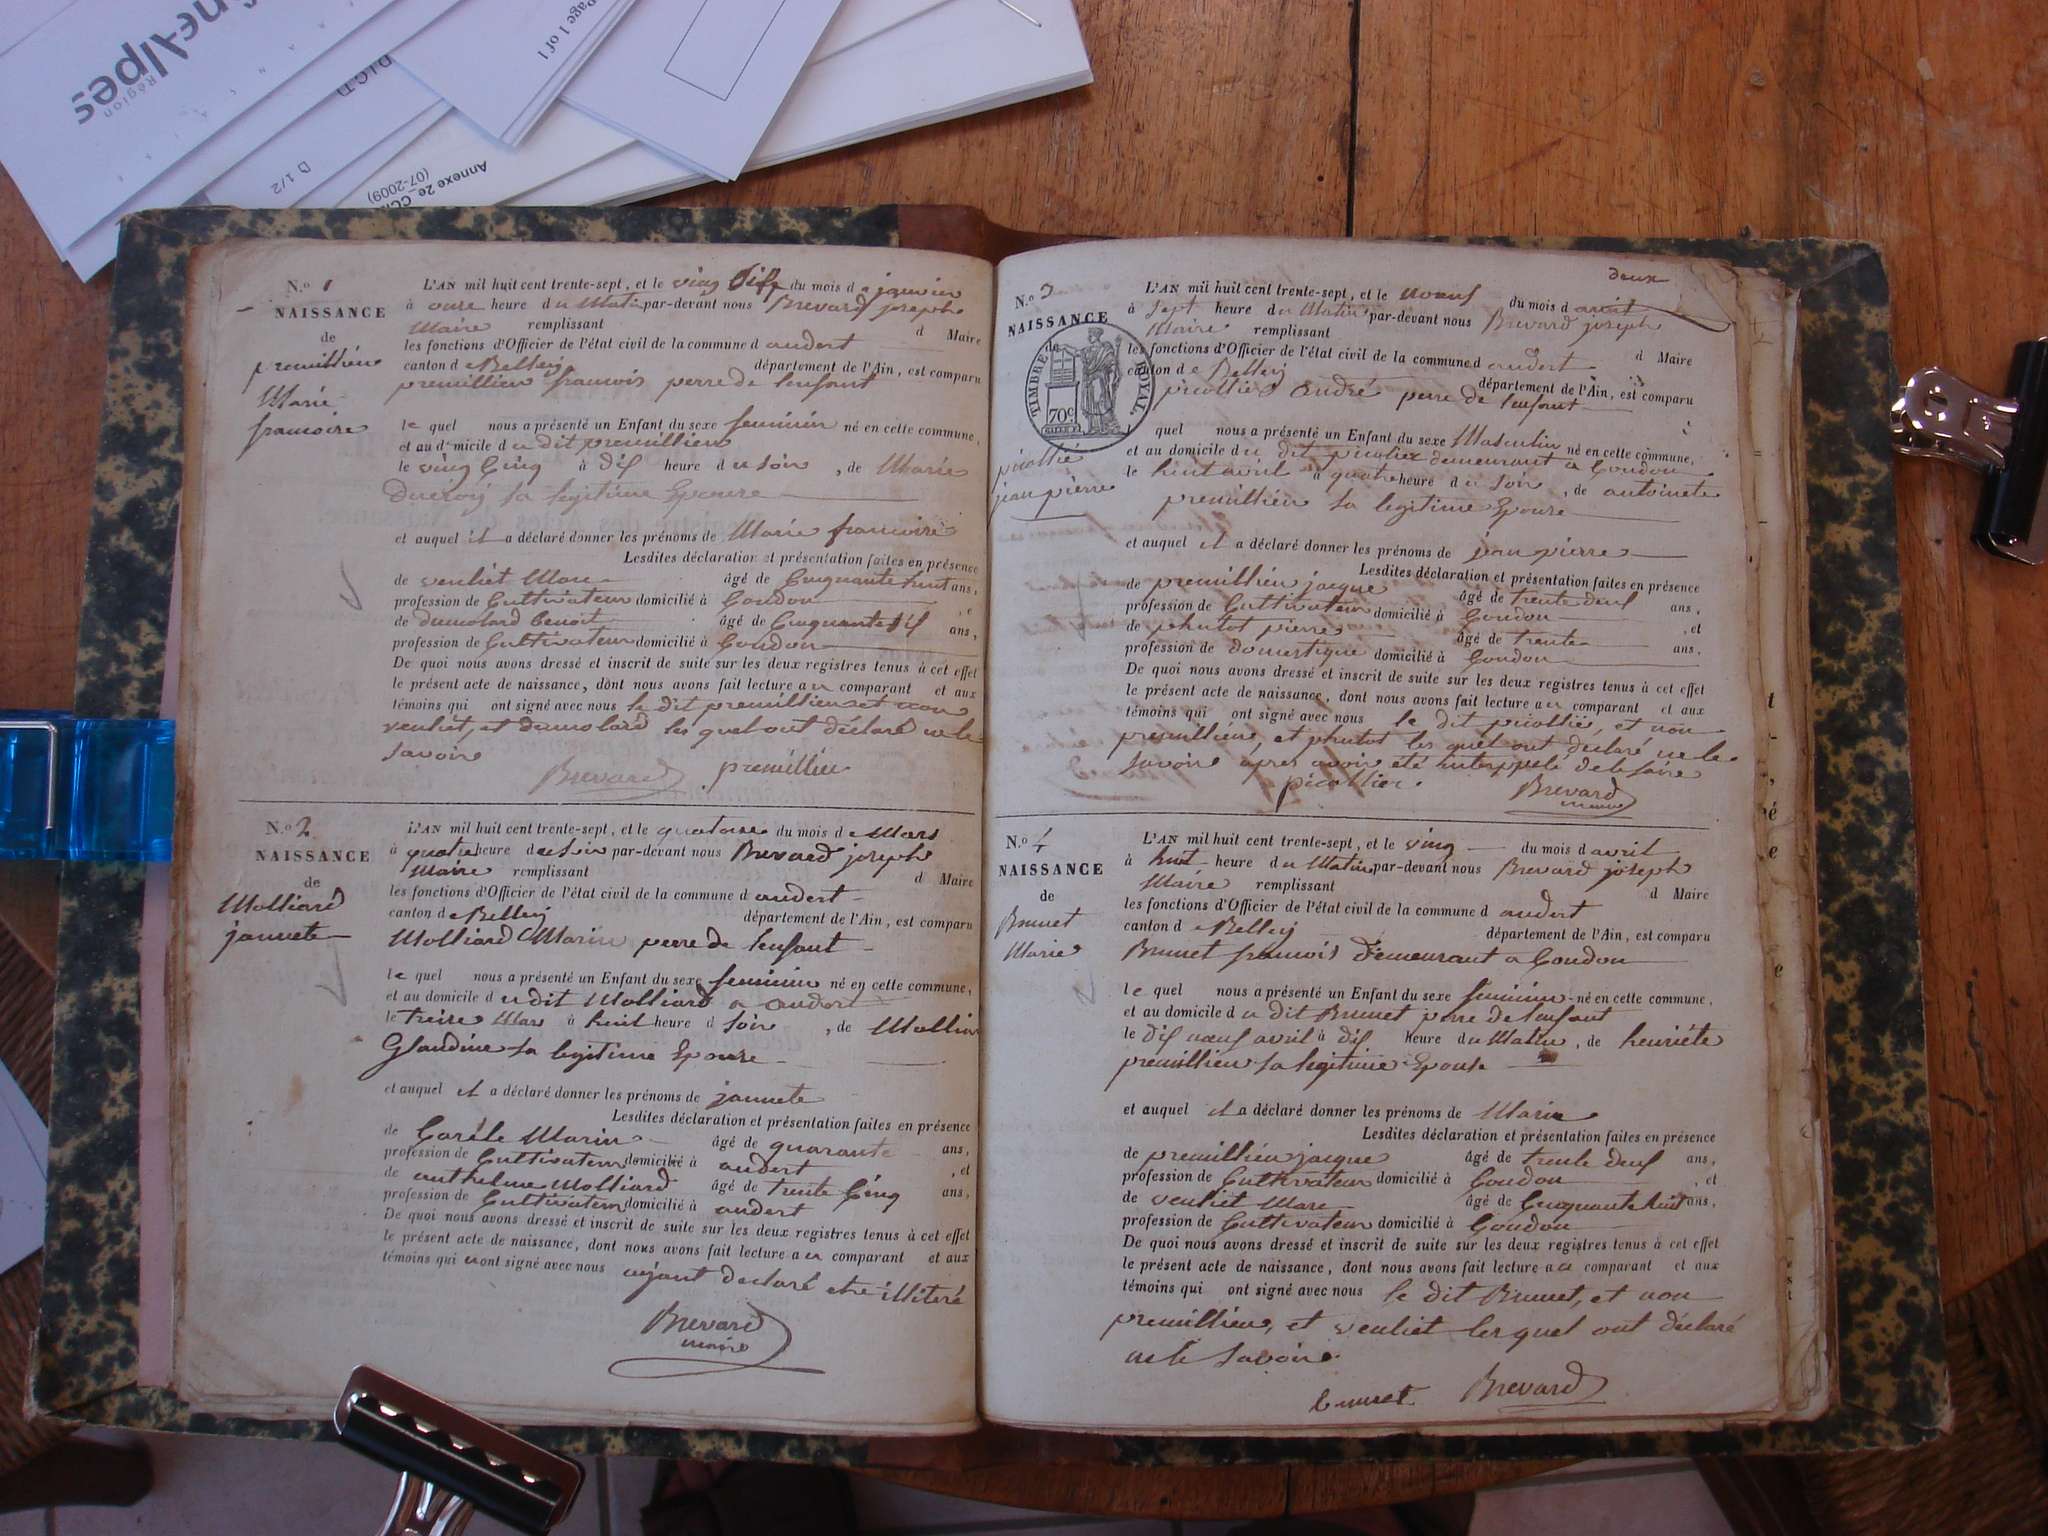 Région
neAlpes
Page 1 of 1
D1CT
D 1/2
Annexe 2e
(07-2009)
N.o 1
NAISSANCE
de
premillieu
Marie
francoise
L'AN mil huit cent trente-sept, et le ving Sift du mois d e janvier
à onze heure d u Matin par-devant nous Brevard joseph
Maire remplissant d Maire
les fonctions d'Officier de l'état civil de la commune d andert
canton d e Belley département de l'Ain, est comparu
premillieu francois perre de lenfant
le quel nous a présenté un Enfant du sexe feminin né en cette commune,
et au domicile d u dit premillieu
le ving Cinq à dif heure d u soir, de Marie
sa legitime Epouse
et auquel il a déclaré donner les prénoms de Marie francoise
Lesdites déclaration et présentation faites en présence
de venliet Marc âgé de Cinquante huit ans,
profession de Cultivateur domicilié à Coudon, e
de dumolard benoit âgé de Cinquante dif ans,
profession de Cultivateur domicilié à Coudon
De quoi nous avons dressé et inscrit de suite sur les deux registres tenus à cet effet
le présent acte de naissance, dont nous avons fait lecture a u comparant et aux
témoins qui ont signé avec nous le dit premillieu et non
venliet, et dumolard les quel ont déclaré ne le
savoir
Brevard premillieu
N.o 2
NAISSANCE
de
Molliard
jannete
L'AN mil huit cent trente-sept, et le quatorze du mois d e Mars
à quatre heure du soir par-devant nous Brevard joseph
Maire remplissant d Maire
les fonctions d'Officier de l'état civil de la commune d andert
canton d e Belley département de l'Ain, est comparu
Molliard Marin perre de lenfant
le quel nous a présenté un Enfant du sexe feminin né en cette commune,
et au domicile d u dit Molliard a andert
le treize Mars à huit heure d soir, de Mollin
Glaudine sa legitime Epouse
et auquel il a déclaré donner les prénoms de jannete
Lesdites déclaration et présentation faites en présence
de Marin âgé de quarante ans,
profession de Cultivateur domicilié à andert, et
de anthelme Molliard âgé de trente Cinq ans,
profession de Cultivateur domicilié à andert
De quoi nous avons dressé et inscrit de suite sur les deux registres tenus à cet effet
le présent acte de naissance, dont nous avons fait lecture a u comparant et aux
témoins qui n ont signé avec nous ayant declaré etre illiteré
Brevard
maire
deux
N.o 3
NAISSANCE
de
TIMBRE ROYAL
70c
picollié
jean pierre
L'AN mil huit cent trente-sept, et le noeuf du mois d avril
à Sept heure d u Matin par-devant nous Brevard joseph
Maire remplissant d Maire
les fonctions d'Officier de l'état civil de la commune d andert
canton d e Belley département de l'Ain, est comparu
picollié andré perre de lenfant
le quel nous a présenté un Enfant du sexe Masculin né en cette commune,
et au domicile d u dit picolier demeurant a Coudon
le huit avril à quatre heure d u soir, de antoinete
premillieu sa legitime Epouse
et auquel il a déclaré donner les prénoms de jean pierre
Lesdites déclaration et présentation faites en présence
de premillieu jacque âgé de trente deuf ans,
profession de Cultivateur domicilié à Coudon, et
de phutot pierre âgé de trente ans,
profession de domestique domicilié à Coudon
De quoi nous avons dressé et inscrit de suite sur les deux registres tenus à cet effet
le présent acte de naissance, dont nous avons fait lecture a u comparant et aux
témoins qui ont signé avec nous le dit picollié, et non
premillieu, et phutot les quel ont declaré ne le
savoir apres avoir été interppelé de le faire
picollier. Brevard
maire
N.o 4
NAISSANCE
de
Brunet
Marie
L'AN mil huit cent trente-sept, et le ving du mois d avril
à huit heure d u Matin par-devant nous Brevard joseph
Maire remplissant d Maire
les fonctions d'Officier de l'état civil de la commune d andert
canton d e Belley département de l'Ain, est comparu
Brunet francois demeurant a Coudon
le quel nous a présenté un Enfant du sexe feminin né en cette commune,
et au domicile d u dit Brunet perre de lenfant
le dif nœuf avril à dif heure d u Matin, de henriéte
premillieu sa legitime Epouse
et auquel il a déclaré donner les prénoms de Marie
Lesdites déclaration et présentation faites en présence
de premillieu jacque âgé de trente deuf ans,
profession de Cultivateur domicilié à Coudon, et
de venliet Marc âgé de Cinquante huit ans,
profession de Cultivateur domicilié à Coudon
De quoi nous avons dressé et inscrit de suite sur les deux registres tenus à cet effet
le présent acte de naissance, dont nous avons fait lecture a u comparant et aux
témoins qui ont signé avec nous le dit Brunet, et non
premillieu, et venliet les quel ont déclaré
ne le savoir
brunet. Brevard